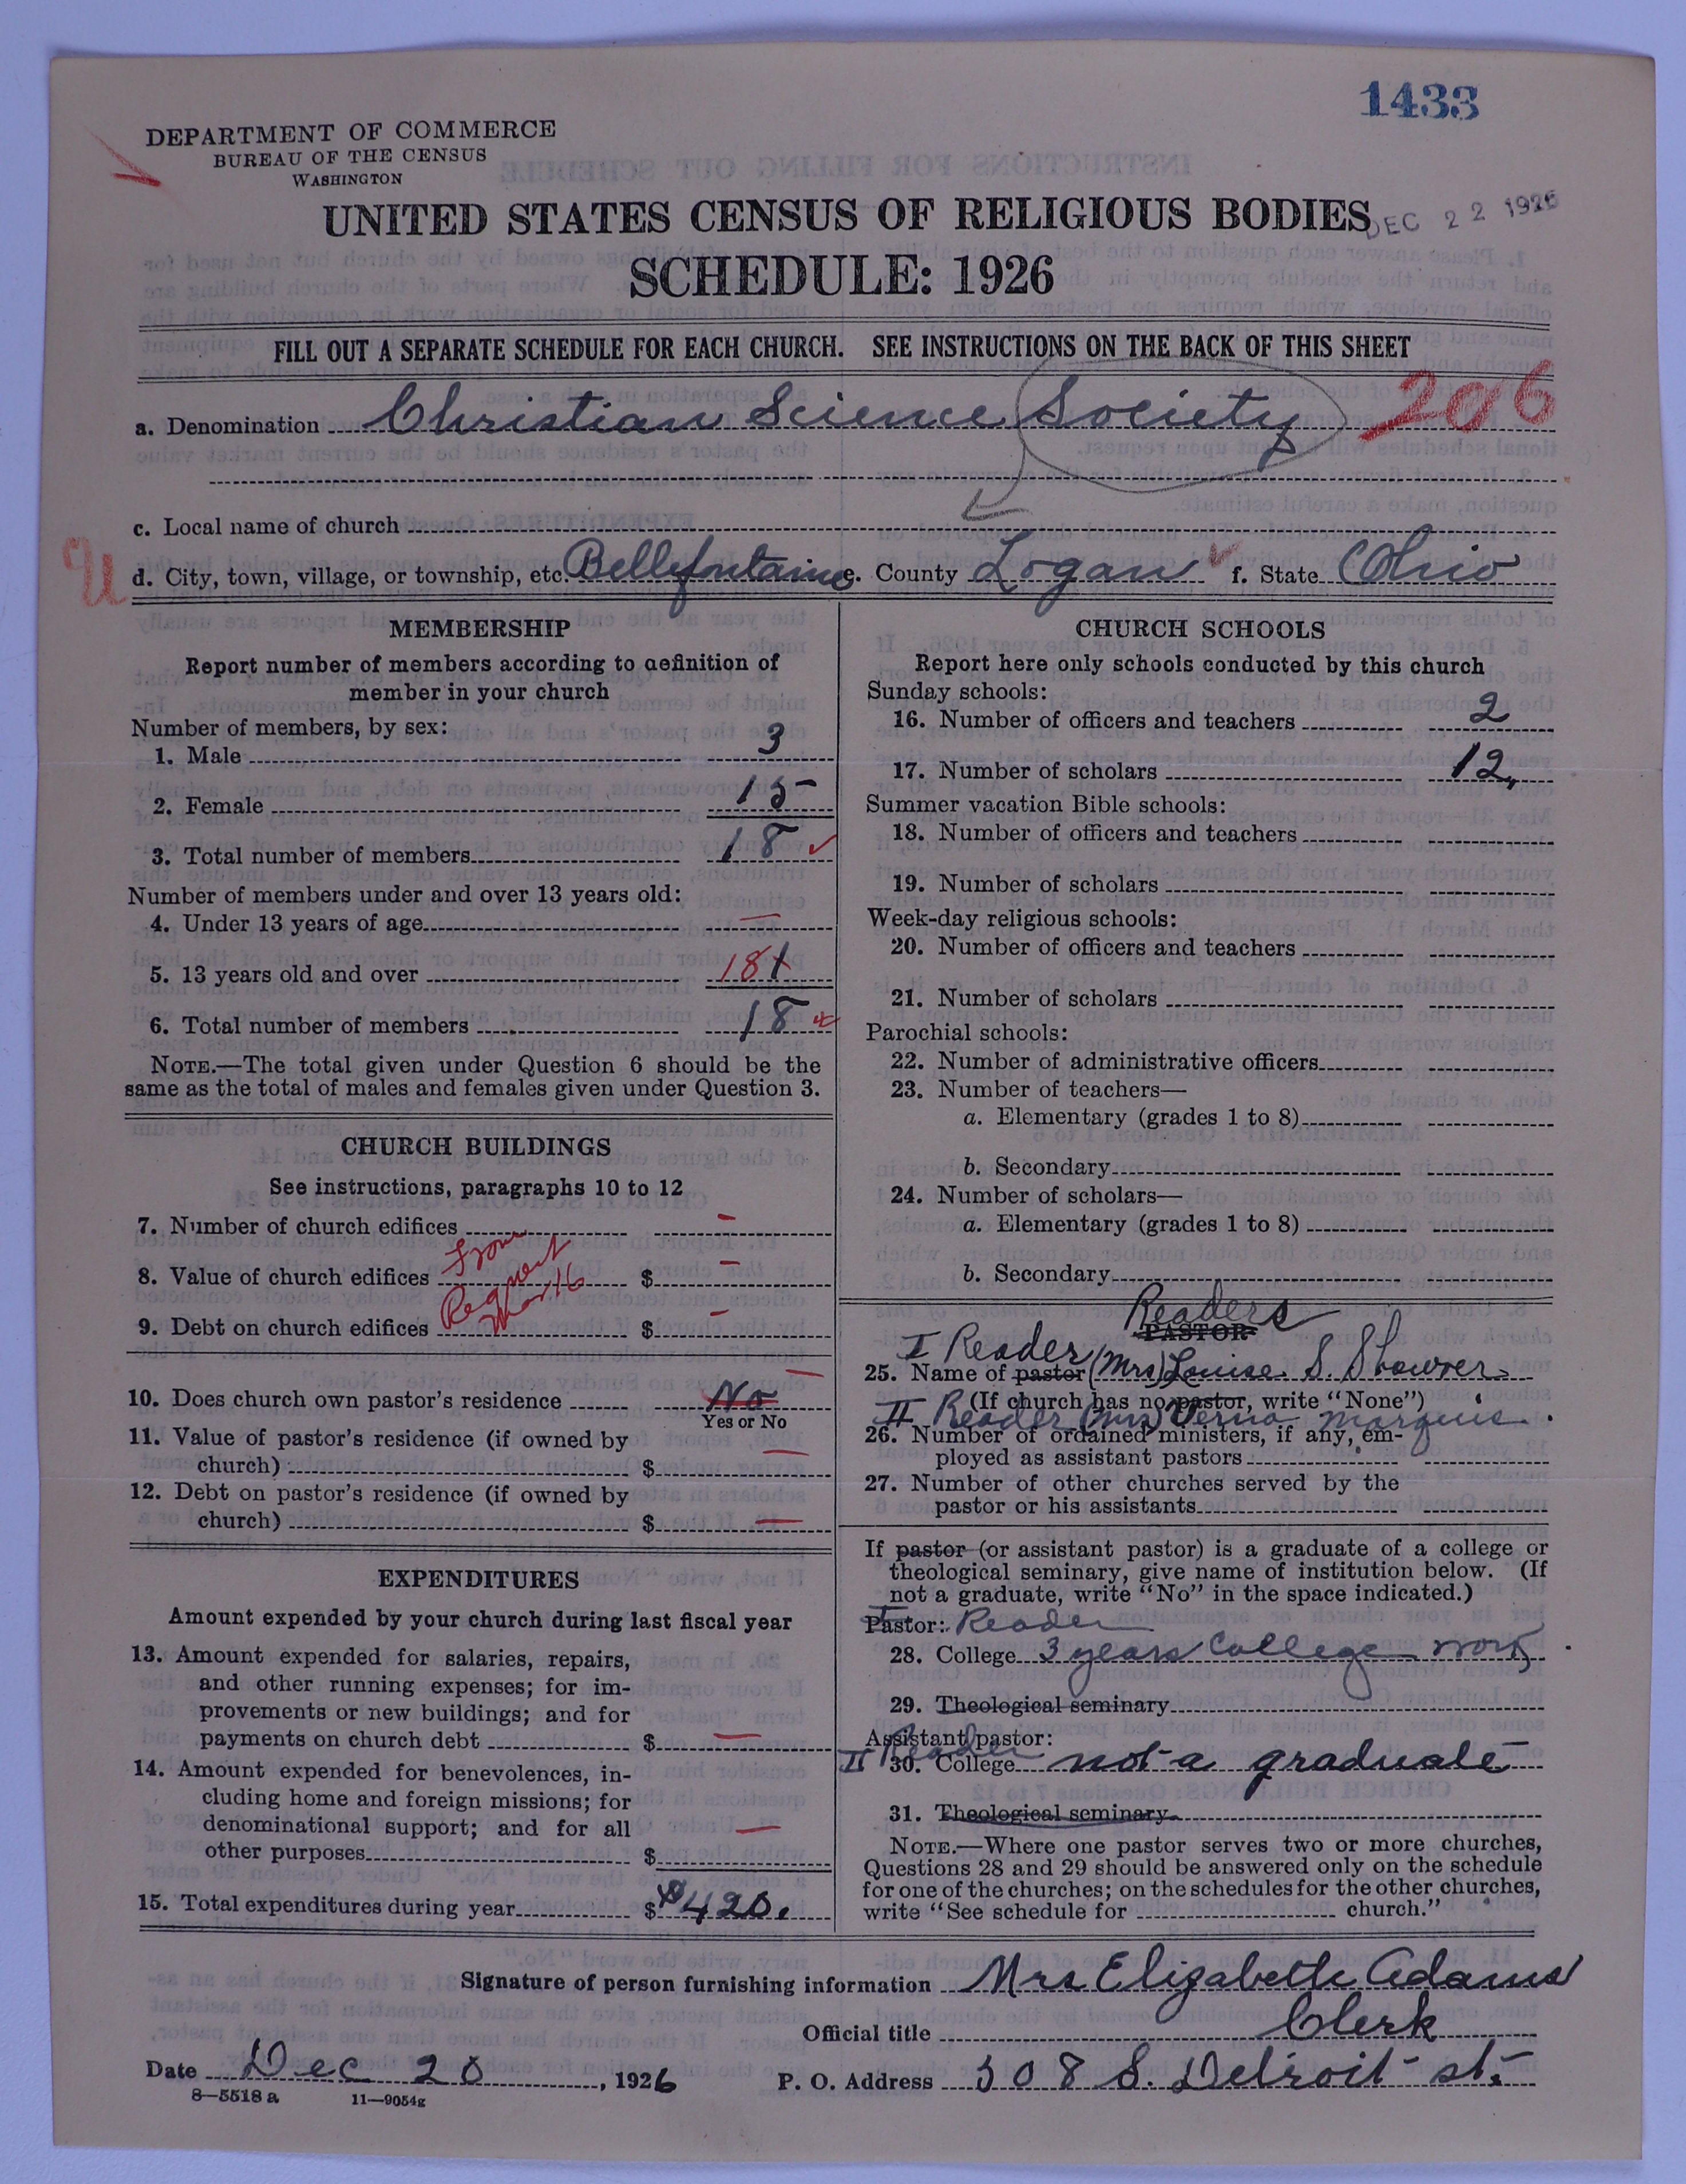 1433
DEPARTMENT OF COMMERCE
BUREAU OF THE CENSUS
WASHINGTON
UNITED STATES CENSUS OF RELIGIOUS BODIES
DEC 22 1926
SCHEDULE: 1926
FILL OUT A SEPARATE SCHEDULE FOR EACH CHURCH. SEE INSTRUCTIONS ON THE BACK OF THIS SHEET
a. Denomination Christian Science Society 206
c. Local name of church
U
d. City, town, village, or township, etc. Bellefontaine e. County Logan f. State Ohio
MEMBERSHIP
Report number of members according to definition of
member in your church
Number of members, by sex:
1. Male 3
2. Female 15
3. Total number of members 18
Number of members under and over 13 years old:
4. Under 13 years of age —
5. 13 years old and over 18
6. Total number of members 18
NOTE.—The total given under Question 6 should be the
same as the total of males and females given under Question 3.
CHURCH BUILDINGS
See instructions, paragraphs 10 to 12
7. Number of church edifices —
8. Value of church edifices $ —
From
Request
Mar. 16
9. Debt on church edifices $ —
10. Does church own pastor's residence No —
Yes or No
11. Value of pastor's residence (if owned by
church) $ —
12. Debt on pastor's residence (if owned by
church) $ —
EXPENDITURES
Amount expended by your church during last fiscal year
13. Amount expended for salaries, repairs,
and other running expenses; for im-
provements or new buildings; and for
payments on church debt $ —
14. Amount expended for benevolences, in-
cluding home and foreign missions; for
denominational support; and for all
other purposes $ —
15. Total expenditures during year $ $420.
CHURCH SCHOOLS
Report here only schools conducted by this church
Sunday schools:
16. Number of officers and teachers 2
17. Number of scholars 12
Summer vacation Bible schools:
18. Number of officers and teachers
19. Number of scholars
Week-day religious schools:
20. Number of officers and teachers
21. Number of scholars
Parochial schools:
22. Number of administrative officers
23. Number of teachers—
a. Elementary (grades 1 to 8)
b. Secondary
24. Number of scholars—
a. Elementary (grades 1 to 8)
b. Secondary
Readers
PASTOR
I Reader
25. Name of pastor (Mrs) Louise S. Shawver
(If church has no pastor, write "None")
II Reader (Mrs) Verna Marquis.
26. Number of ordained ministers, if any, em-
ployed as assistant pastors
27. Number of other churches served by the
pastor or his assistants
If pastor (or assistant pastor) is a graduate of a college or
theological seminary, give name of institution below. (If
not a graduate, write "No" in the space indicated.)
Pastor: I Reader
28. College 3 years College work.
29. Theological seminary
Assistant pastor:
II Reader
30. College not a graduate
31. Theological seminary
NOTE.—Where one pastor serves two or more churches,
Questions 28 and 29 should be answered only on the schedule
for one of the churches; on the schedules for the other churches,
write "See schedule for church."
Signature of person furnishing information Mrs Elizabeth Adams
Official title Clerk
Date Dec 20, 1926 P. O. Address 308 S. Detroit st.
8—5518 a 11—9054g